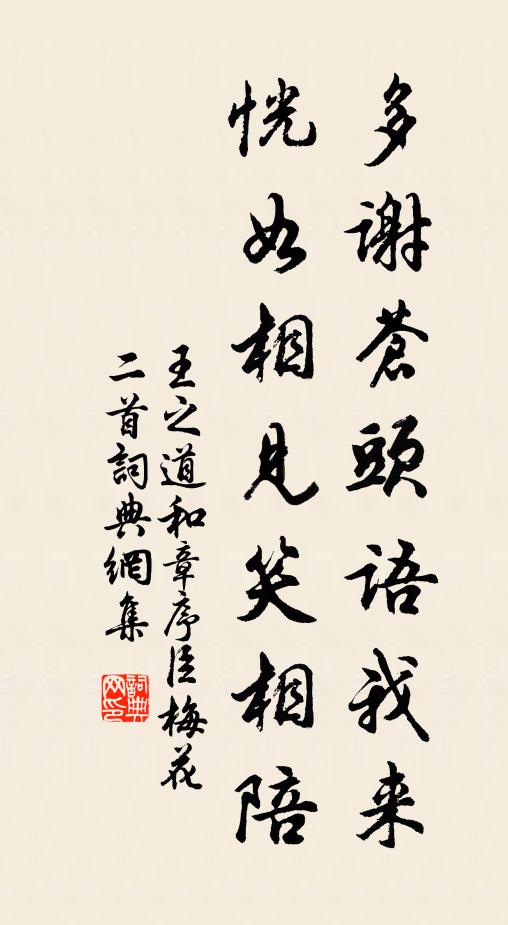 多谢蒼頭語我来
恍如相見笑相陪
王之道和章序臣梅花
二首詞典網集
詞典
网印